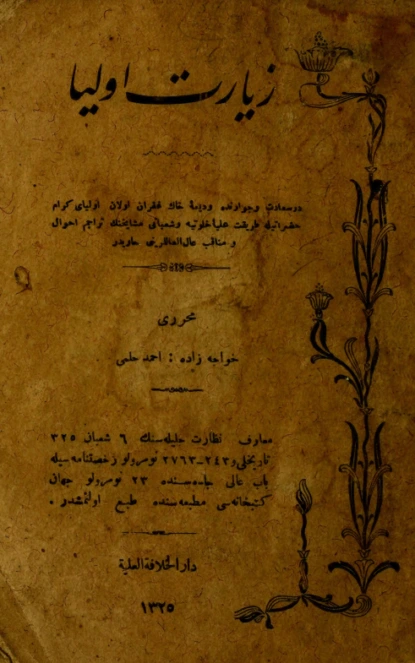 زيارت اوليا
درسعادت وجوارنده وديعهٔ خاك غفران اولان اولياى كرام
حضراتيله طريقت عليهٔ خلوتيه وشعبانى مشايخنك تراجم احوال
و مناقب عال العالارينى حاويدر
محررى
خواجه زاده : احمد حلمى
معارف نظارت جليله سنك ٦ شعبان ٣٢٥
تاريخلى و ٢٤٣-٢٧٦٣ نومرولو رخصتنامه سيله
باب عالى جاده سنده ٢٣ نومرولو جهان
كتبخانه سى مطبعه سنده طبع اولنمشدر .
دار الخلافة العلية
١٣٢٥